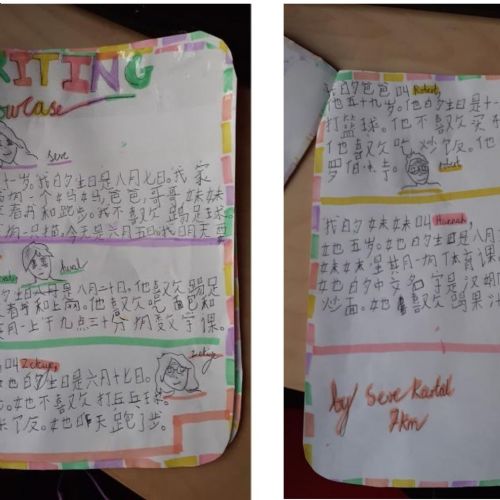 RITING
owcase
seve
十一岁。我的生日是八月七日。我家
有一个妈妈，爸爸，哥哥 妹妹
看书和跑步。我不喜欢 踢足球。
狗一只猫，今天是六月五日。我明天要
生日是八月二日。他喜欢踢足
看书和上网。他喜欢吃面包和
月一上午九点三十分有数学课。
叫 Zekiye,
她的生日是六月十七日。
Zekiye
步。她不喜欢打乒乓球。
米饭。她昨天跑了步。
的爸爸叫 Robert,
他五十九岁。他的生日是十
打篮球。他不喜欢买东
他喜欢吃炒饭。他
罗伯味寺。
我的妹妹叫 Hannah,
她五岁。她的生日是八月
妹妹星其月一有体育课。
她的中文名字是汉娜
炒面。她喜欢喝果汁
by Seve Kartal
7km